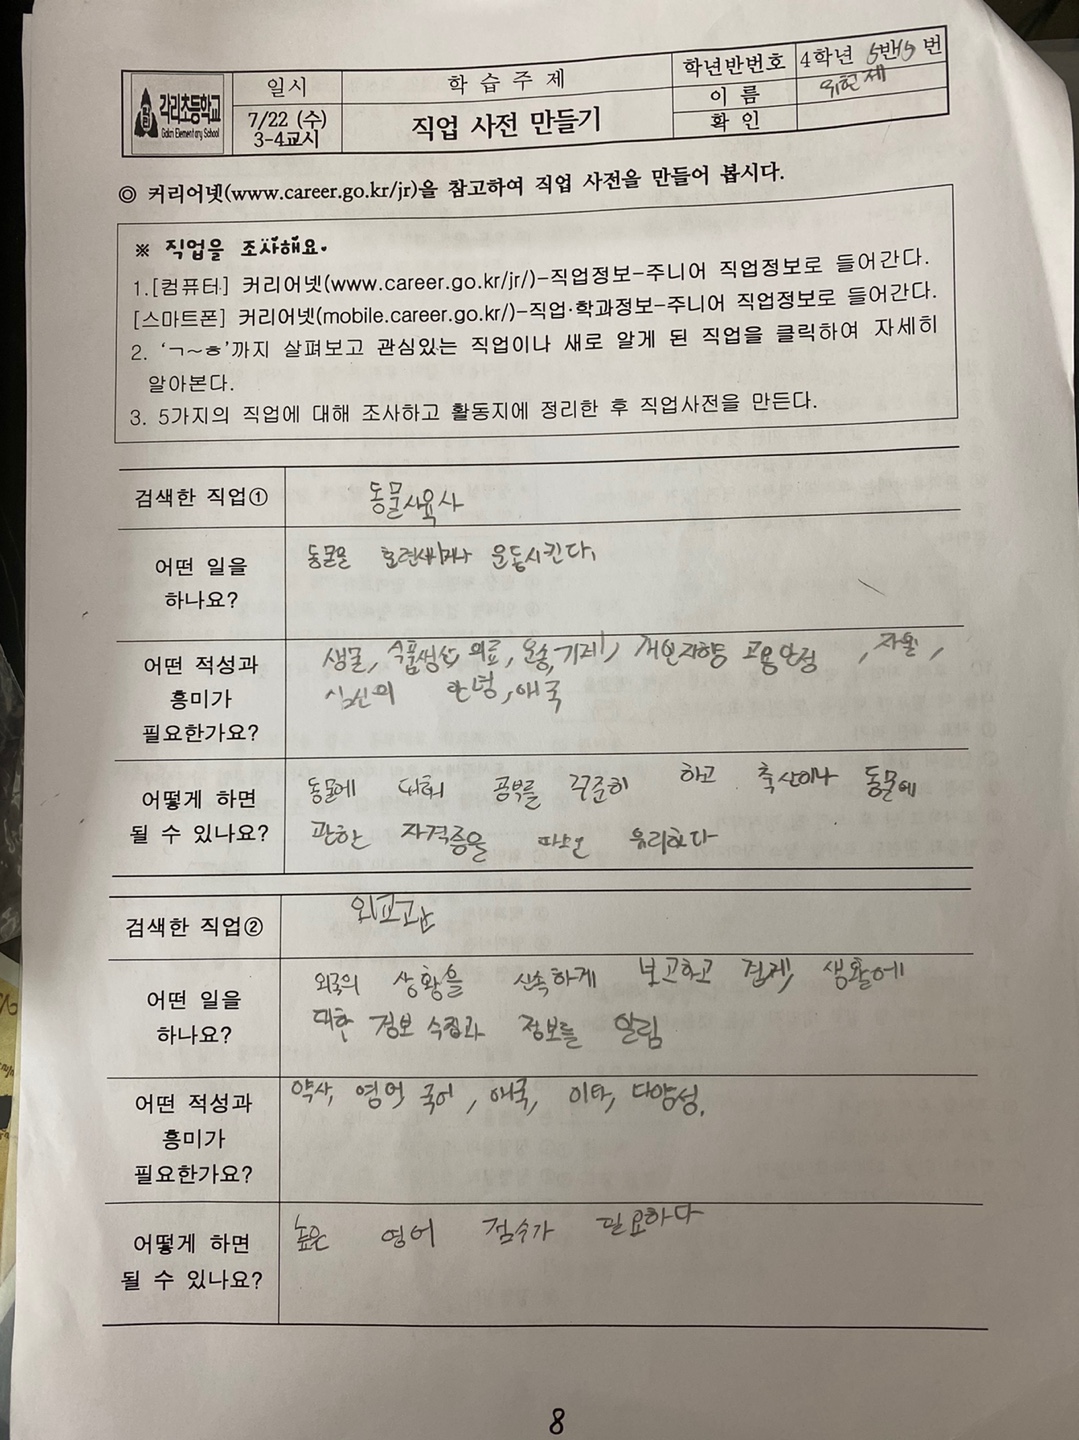 각리초등학교
Gakri Elementary School
일시
7/22 (수)
3-4교시
학 습 주 제
직업 사전 만들기
학년반번호
4학년 5반 번
이 름
위현제
확 인
◎ 커리어넷(www.career.go.kr/jr)을 참고하여 직업 사전을 만들어 봅시다.
※ 직업을 조사해요.
1.[컴퓨터] 커리어넷(www.career.go.kr/jr/)-직업정보-주니어 직업정보로 들어간다.
[스마트폰] 커리어넷(mobile.career.go.kr/)-직업·학과정보-주니어 직업정보로 들어간다.
2. 'ㄱ~ㅎ'까지 살펴보고 관심있는 직업이나 새로 알게 된 직업을 클릭하여 자세히
알아본다.
3. 5가지의 직업에 대해 조사하고 활동지에 정리한 후 직업사전을 만든다.
검색한 직업①
동물사육사
어떤 일을
하나요?
동물을 훈련시키거나 운동시킨다.
어떤 적성과
흥미가
필요한가요?
생물, 식품생산, 의료, 운송, 기계, 개인지향 고용안정, 자율,
심신의 안녕, 애국
어떻게 하면
될 수 있나요?
동물에 대해 공부를 꾸준히 하고 축산이나 동물에
관한 자격증을 따으면 유리하다
검색한 직업②
외교관
어떤 일을
하나요?
외국의 상황을 신속하게 보고하고 경제, 생활에
대한 정보 수집과 정보를 알림
어떤 적성과
흥미가
필요한가요?
역사, 영어, 국어, 애국, 이타, 다양성,
어떻게 하면
될 수 있나요?
높은 영어 점수가 필요하다
8